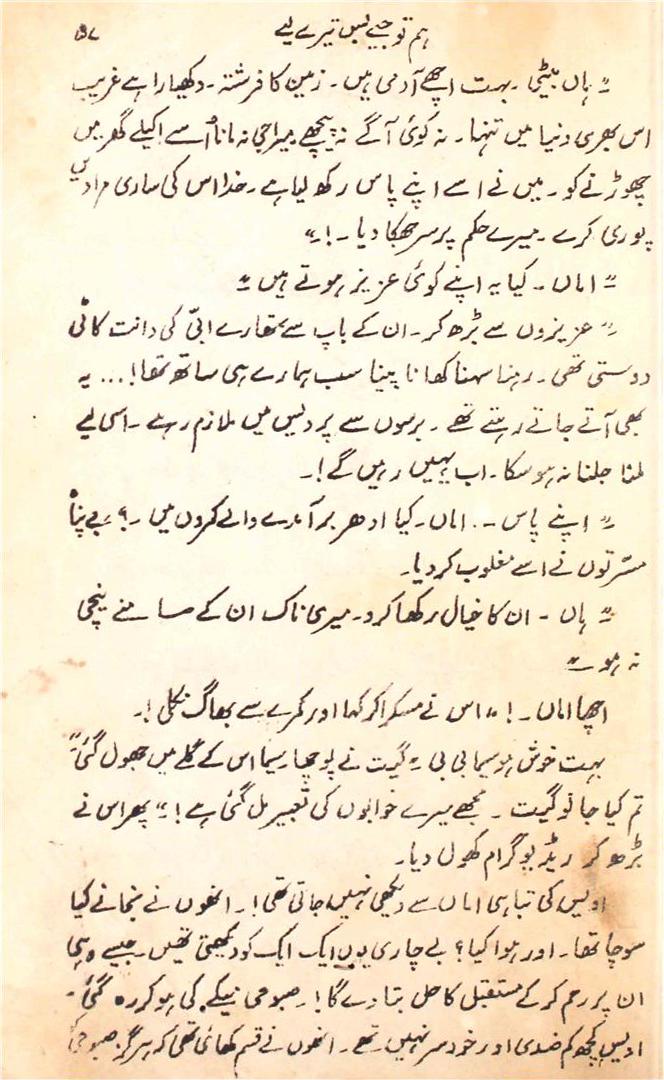 ہم تو جیے بس تیرے لیے ۵۷
"ہاں بیٹی۔ بہت اچھے آدمی ہیں۔ زمین کا فرشتہ۔ دکھیارا ہے غریب
اس بھری دنیا میں تنہا۔ نہ کوئی آگے نہ پیچھے میرا جی نہ مانا اُسے اکیلے گھر میں
چھوڑنے کو۔ میں نے اسے اپنے پاس رکھ لیا ہے۔ خدا اس کی ساری مرادیں
پوری کرے۔ میرے حکم پر سر جھکا دیا۔!"
"اماں۔ کیا یہ اپنے کوئی عزیز ہوتے ہیں"
"عزیزوں سے بڑھ کر۔ ان کے باپ سے تمھارے ابّی کی دانت کاٹی
دوستی تھی۔ رہنا سہنا کھانا پینا سب ہمارے ہی ساتھ تھا!... یہ
بھی آتے جاتے رہتے تھے۔ برسوں سے پردیس میں ملازم رہے۔ اسی لیے
ملنا جلنا نہ ہو سکا۔ اب یہیں رہیں گے!۔
"اپنے پاس۔. اماں۔ کیا ادھر برآمدے والے کمروں میں۔؟ بے پناہ
مسّرتوں نے اسے مغلوب کر دیا۔
"ہاں۔ ان کا خیال رکھا کرو۔ میری ناک ان کے سامنے نیچی
نہ ہو۔"
اچھا اماں۔!" اس نے مسکرا کر کہا اور کمرے سے بھاگ نکلی!۔
بہت خوش ہو سیما بی بی" گیت نے پوچھا۔ سیما اس کے گلے میں جھول گئی"
تم کیا جانو گیت۔ مجھے میرے خوابوں کی تعبیر مل گئی ہے!" پھر اس نے
بڑھ کر ریڈیو گرام کھول دیا۔
اویس کی تباہی اماں سے دیکھی نہیں جاتی تھی!۔ انھوں نے نجانے کیا
سوچا تھا۔ اور ہوا کیا؟ بے چاری یوں ایک ایک کو دیکھتی تھیں۔ جیسے وہی
ان پر رحم کر کے مستقبل کا حل بتا دے گا!۔ صبوحی میکے کی ہو کر رہ گئی۔
اویس کچھ کم ضدی اور خود سر نہیں تھے۔ انھوں نے قسم کھائی تھی کہ ہرگز صبوحی